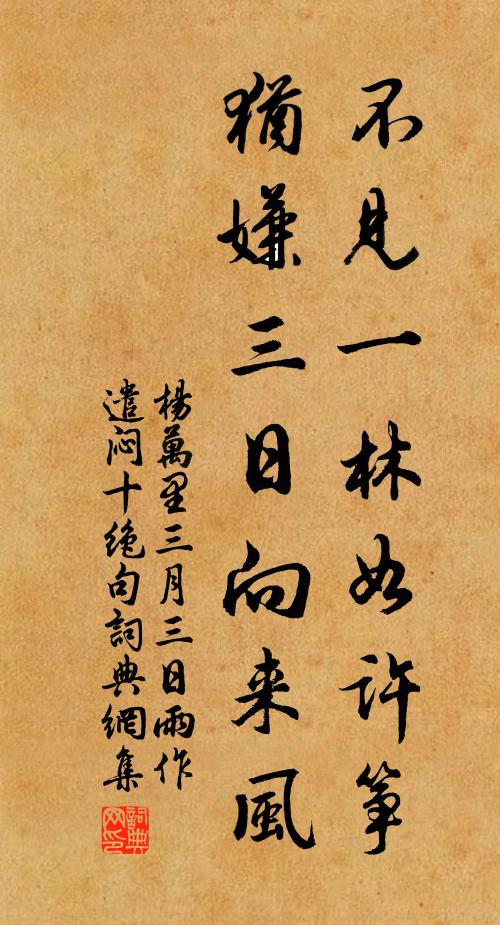 不見一林如許筝
猶嫌三日向来風
楊萬里三月三日雨作
遣闷十绝句詞典網集
詞典
网印